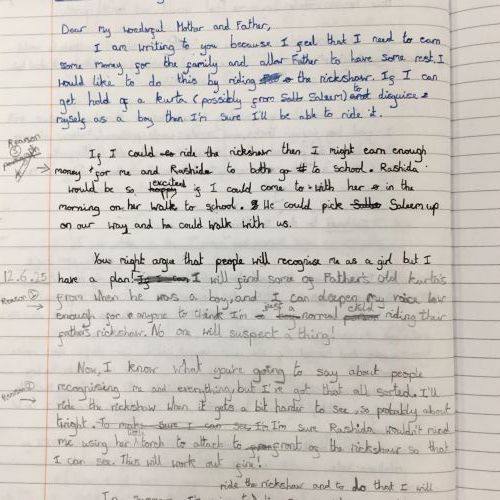 Dear my wonderful Mother and Father,
I am writing to you because I feel that I need to earn
some money for the family and allow Father to have some rest. I
would like to do this by riding the rickshaw. If I can
get hold of a kurta (possibly from Saleem) to disguise
myself as a boy then I'm sure I'll be able to ride it.
Reason
If I could ride the rickshaw then I might earn enough
money for me and Rashida to both go to school. Rashida
would be so excited if I could come to with her in the
morning on her walk to school. He could pick Saleem up
on our way and he could walk with us.
You might argue that people will recognise me as a girl but I
12.6.25 have a plan! I will find some of Father's old kurta's
Reason
from when he was a boy, and I can deepen my voice low
enough for anyone to think I'm just a normal child riding their
father's rickshaw. No one will suspect a thing!
Now, I know what you're going to say about people
Reason
recognising me and everything, but I've got that all sorted. I'll
ride the rickshaw when it gets a bit harder to see, so probably about
twight. To make sure I can see, I'm sure Rashida wouldn't mind
me using her torch to attach to front of the rickshaw so that
I can see. This will work out fine!
ride the rickshaw and to do that I will